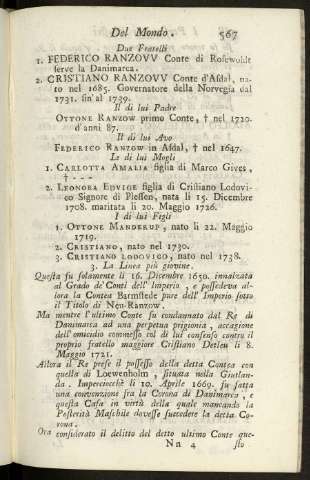 Del Mondo. 567
Due Fratelli
1. FEDERICO RANZOVV Conte di Rosewoldt
serve la Danimarca.
2. CRISTIANO RANZOVV Conte d'Asdal, na-
to nel 1685. Governatore della Norvegia dal
1731. sin'al 1739.
Il di lui Padre
OTTONE RANZOW primo Conte, † nel 1720.
d'anni 87.
Il di lui Avo
FEDERICO RANZOW in Asdal, † nel 1647.
Le di lui Mogli
1. CARLOTTA AMALIA figlia di Marco Gives,
† - - -
2. LEONORA EDVIGE figlia di Cristiano Lodovi-
co Signore di Plessen, nata li 15. Dicembre
1708. maritata li 20. Maggio 1726.
I di lui Figli
1. OTTONE MANDERUP, nato li 22. Maggio
1719.
2. CRISTIANO, nato nel 1730.
3. CRISTIANO LODOVICO, nato nel 1738.
3. La Linea più giovine.
Questa fu solamente li 16. Dicembre 1650. innalzata
al Grado de' Conti dell' Imperio, e possedeva al-
lora la Contea Barmstede pure dell' Imperio sotto
il Titolo di Neu-Ranzow.
Ma mentre l'ultimo Conte fu condannato dal Re di
Danimarca ad una perpetua prigionia, accagione
dell'omicidio commesso col di lui consenso contro il
proprio fratello maggiore Cristiano Detleu li 8.
Maggio 1721.
Allora il Re prese il possesso della detta Contea con
quella di Loewenholm, situata nella Giutlan-
da. Imperciocchè li 10. Aprile 1669. fu fatta
una convenzione fra la Corona di Danimarca, e
questa Casa in virtù della quale mancando la
Posterità Maschile dovesse succedere la detta Co-
rona.
Ora considerato il delitto del detto ultimo Conte que-
Nn 4 sto